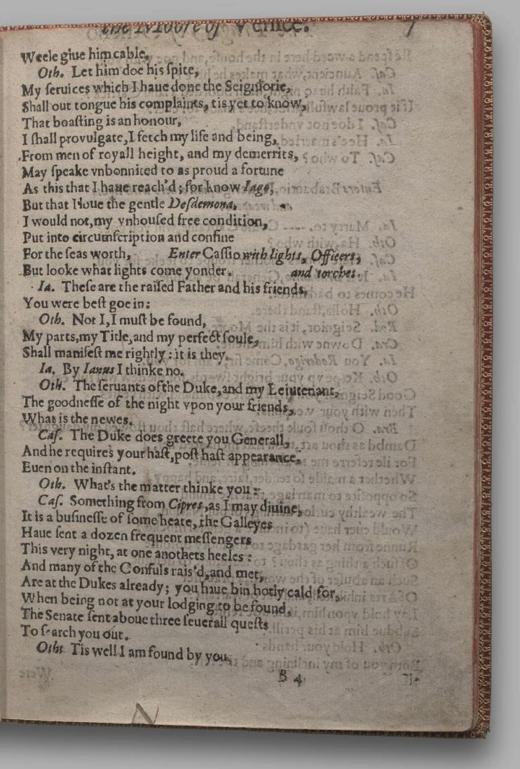 the Moore of Venice. 7
Weele giue him cable,
Oth. Let him doe his ſpite,
My ſeruices which I haue done the Seigniorie,
Shall out tongue his complaints, tis yet to know,
That boaſting is an honour,
I ſhall provulgate, I fetch my life and being,
From men of royall height, and my demerrits,
May ſpeake vnbonnited to as proud a fortune
As this that I haue reach'd; for know Iago,
But that I loue the gentle Deſdemona,
I would not, my vnhouſed free condition,
Put into circumſcription and confine
For the ſeas worth, Enter Caſſio with lights, Officers,
But looke what lights come yonder. and torches.
Ia. Theſe are the raiſed Father and his friends,
You were beſt goe in:
Oth. Not I, I muſt be found,
My parts, my Title, and my perfect ſoule,
Shall manifeſt me rightly: it is they.
Ia. By Ianus I thinke no.
Oth. The ſeruants of the Duke, and my Leiutenant,
The goodneſſe of the night vpon your friends,
What is the newes.
Caſ. The Duke does greete you Generall,
And he requires your haſt, poſt haſt appearance,
Euen on the inſtant.
Oth. What's the matter thinke you?
Caſ. Something from Cipres, as I may diuine,
It is a buſineſſe of ſome heate, the Galleyes
Haue ſent a dozen frequent meſſengers
This very night, at one anothers heeles:
And many of the Conſuls rais'd, and met,
Are at the Dukes already; you haue bin hotly cald for,
When being not at your lodging to be found,
The Senate ſent aboue three ſeuerall queſts
To ſearch you out.
Oth. Tis well I am found by you,
B 4